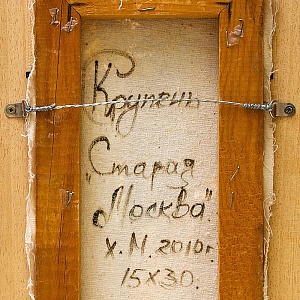 Крупень
"Старая
Москва"
х.м. 2010г.
15х30.